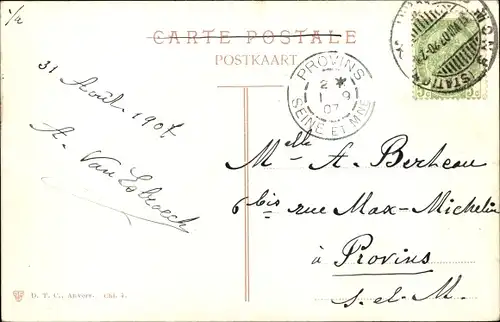 1/u
CARTE POSTALE
POSTKAART
31 Août 1907
A. Van Esbroeck
PROVINS
2 *
1 9
07
SEINE ET MNE
MONS
(STATION)
Melle A. Berheau
6bis rue Max-Michelin
à Provins
S.-et.-M.
D. T. C., Anvers. Chl. 4.